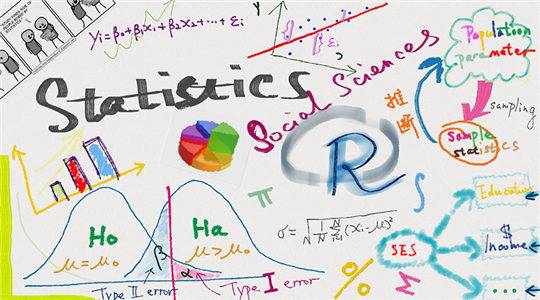 yi = β0 + β1x1 + β2x2 + ... + εi
Y
εi
x
Statistics
Social Sciences
Population
parameter
sampling
Sample
statistics
推
断
R
π
∫
σ = √(1/N Σ(xi-μ)²)
Ho
μ=μ0
Ha
μ>μ0
β
α
Type II error
Type I error
%
Σ
SES
Education
$
Income
....